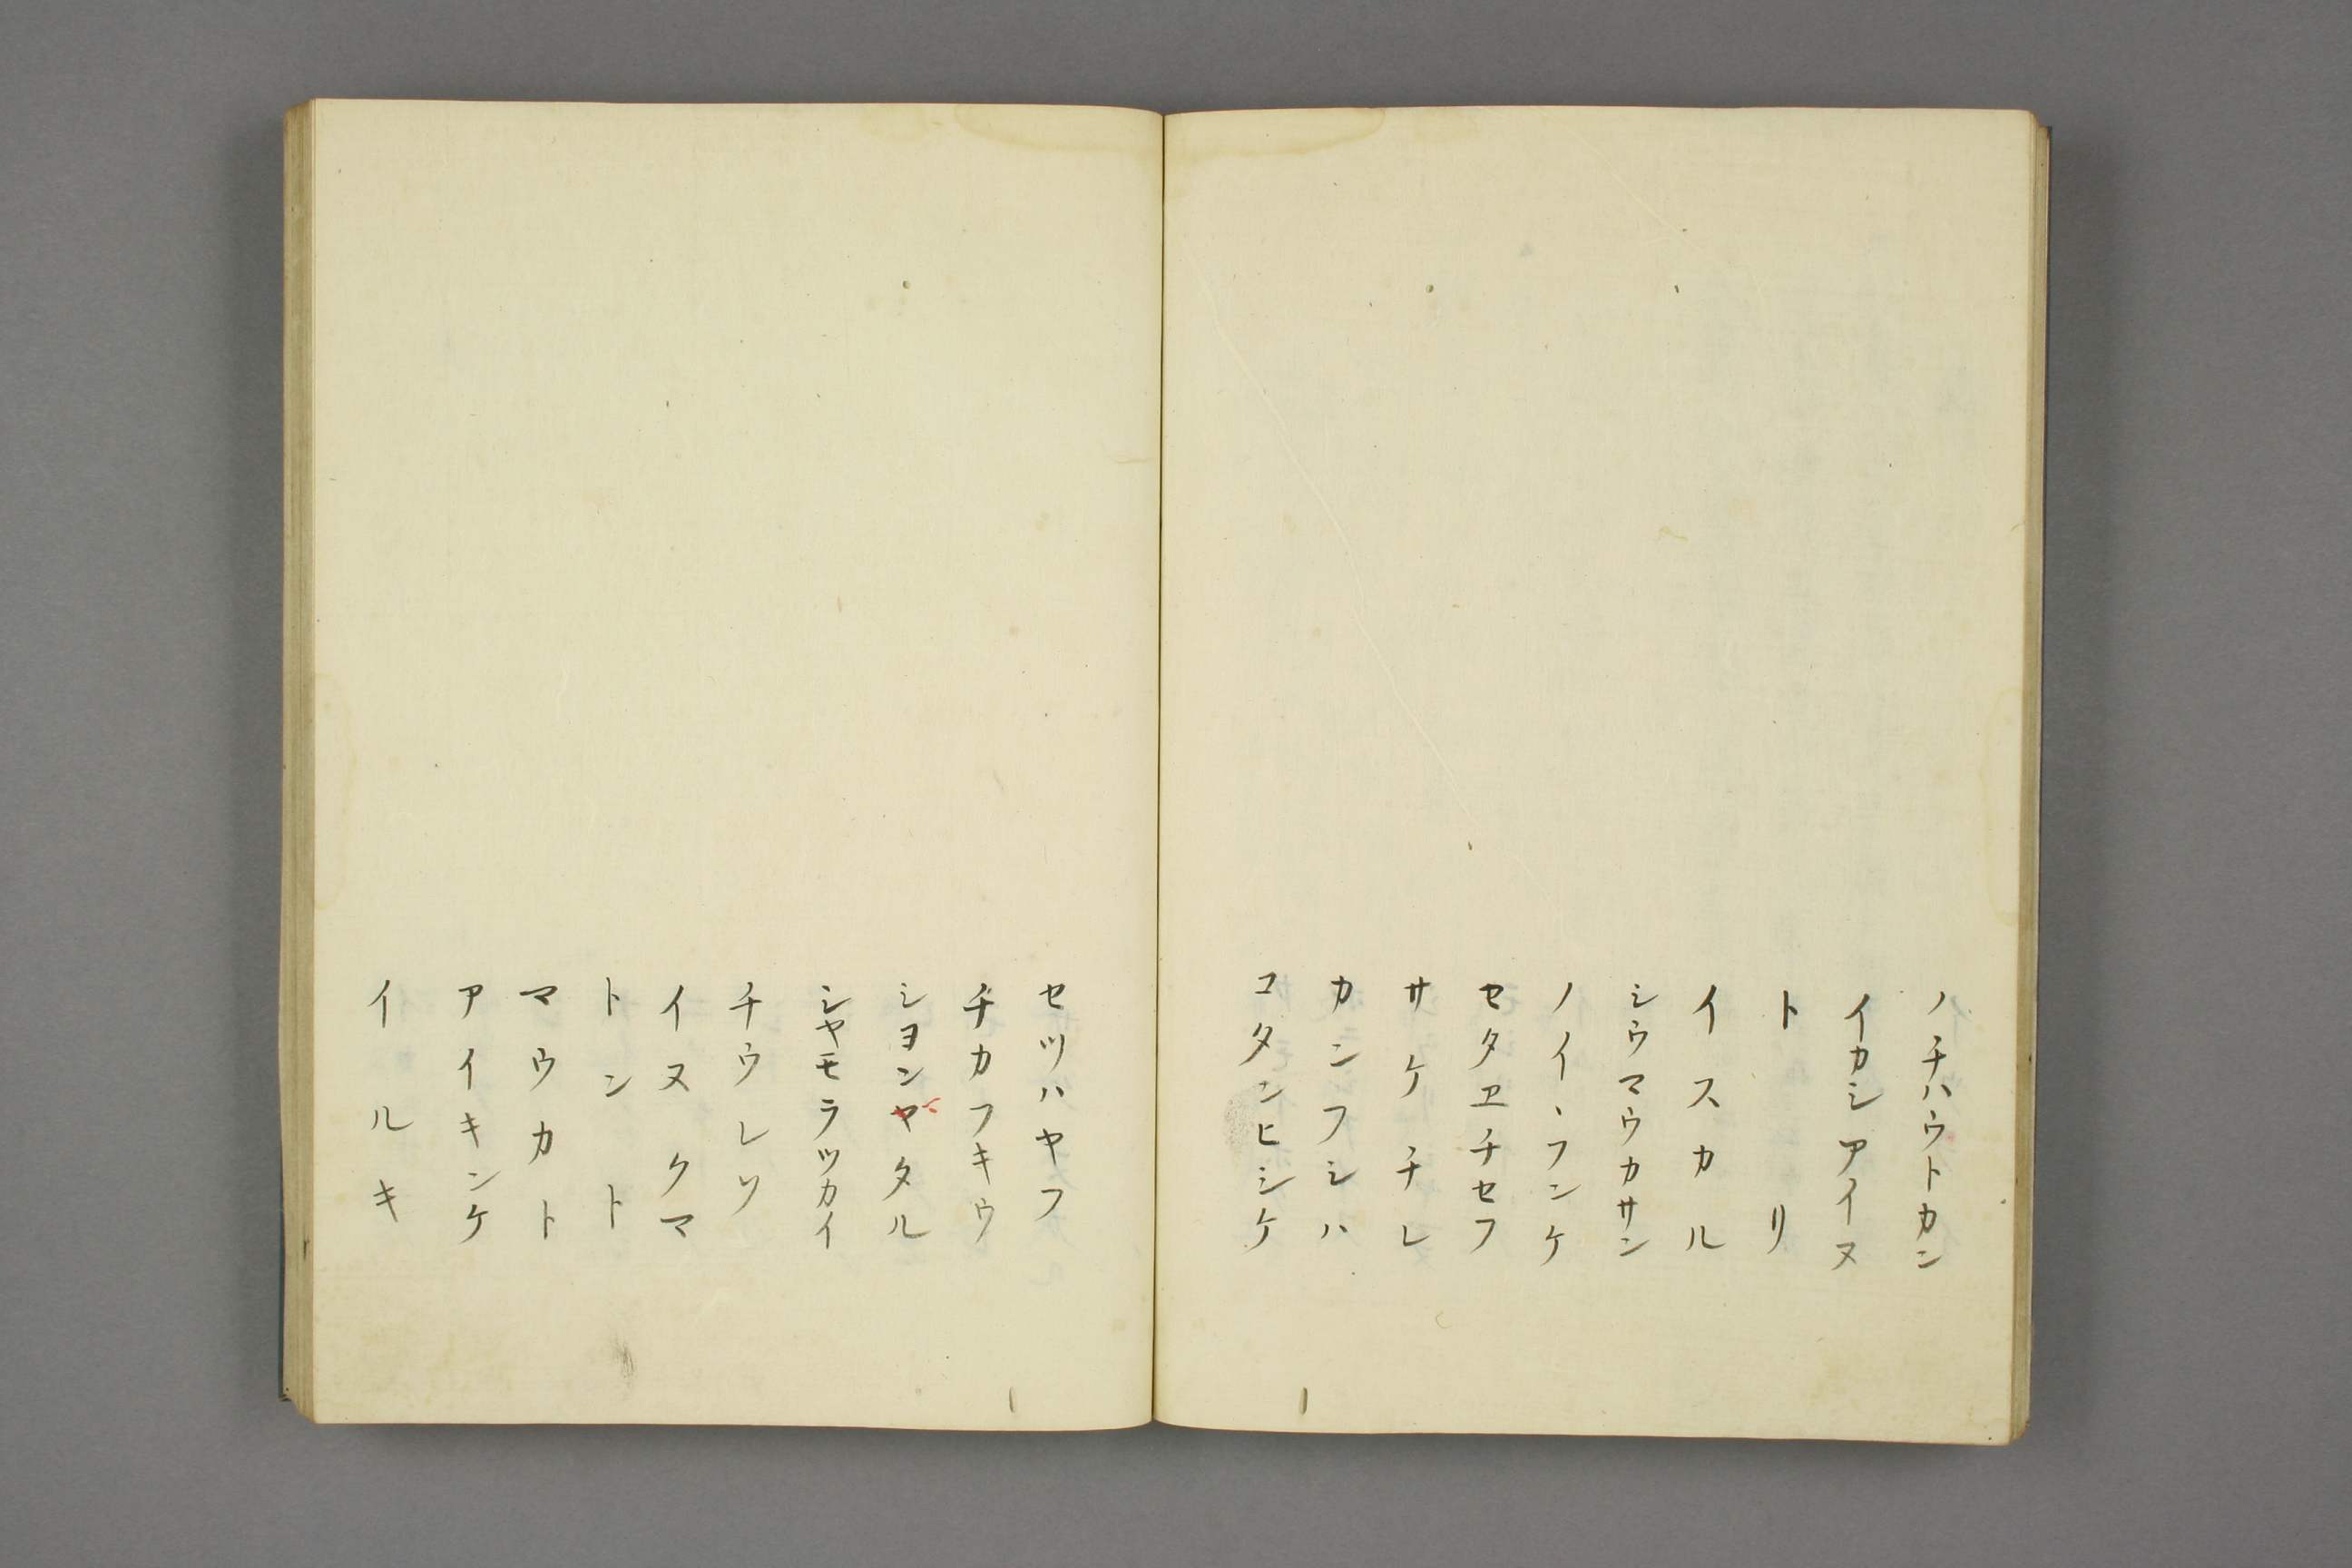 ノチハウトカン
イカシアイヌ
トリ
イスカル
シウマウカサン
ノイヽフンケ
セタヱチセフ
サケチレ
カンフシハ
コタンヒシケ
セツハヤフ
チカフキウ
シヨンヤタル
シヤモラツカイ
チウレソ
イヌクマ
トント
マウカト
アイキンケ
イルキ